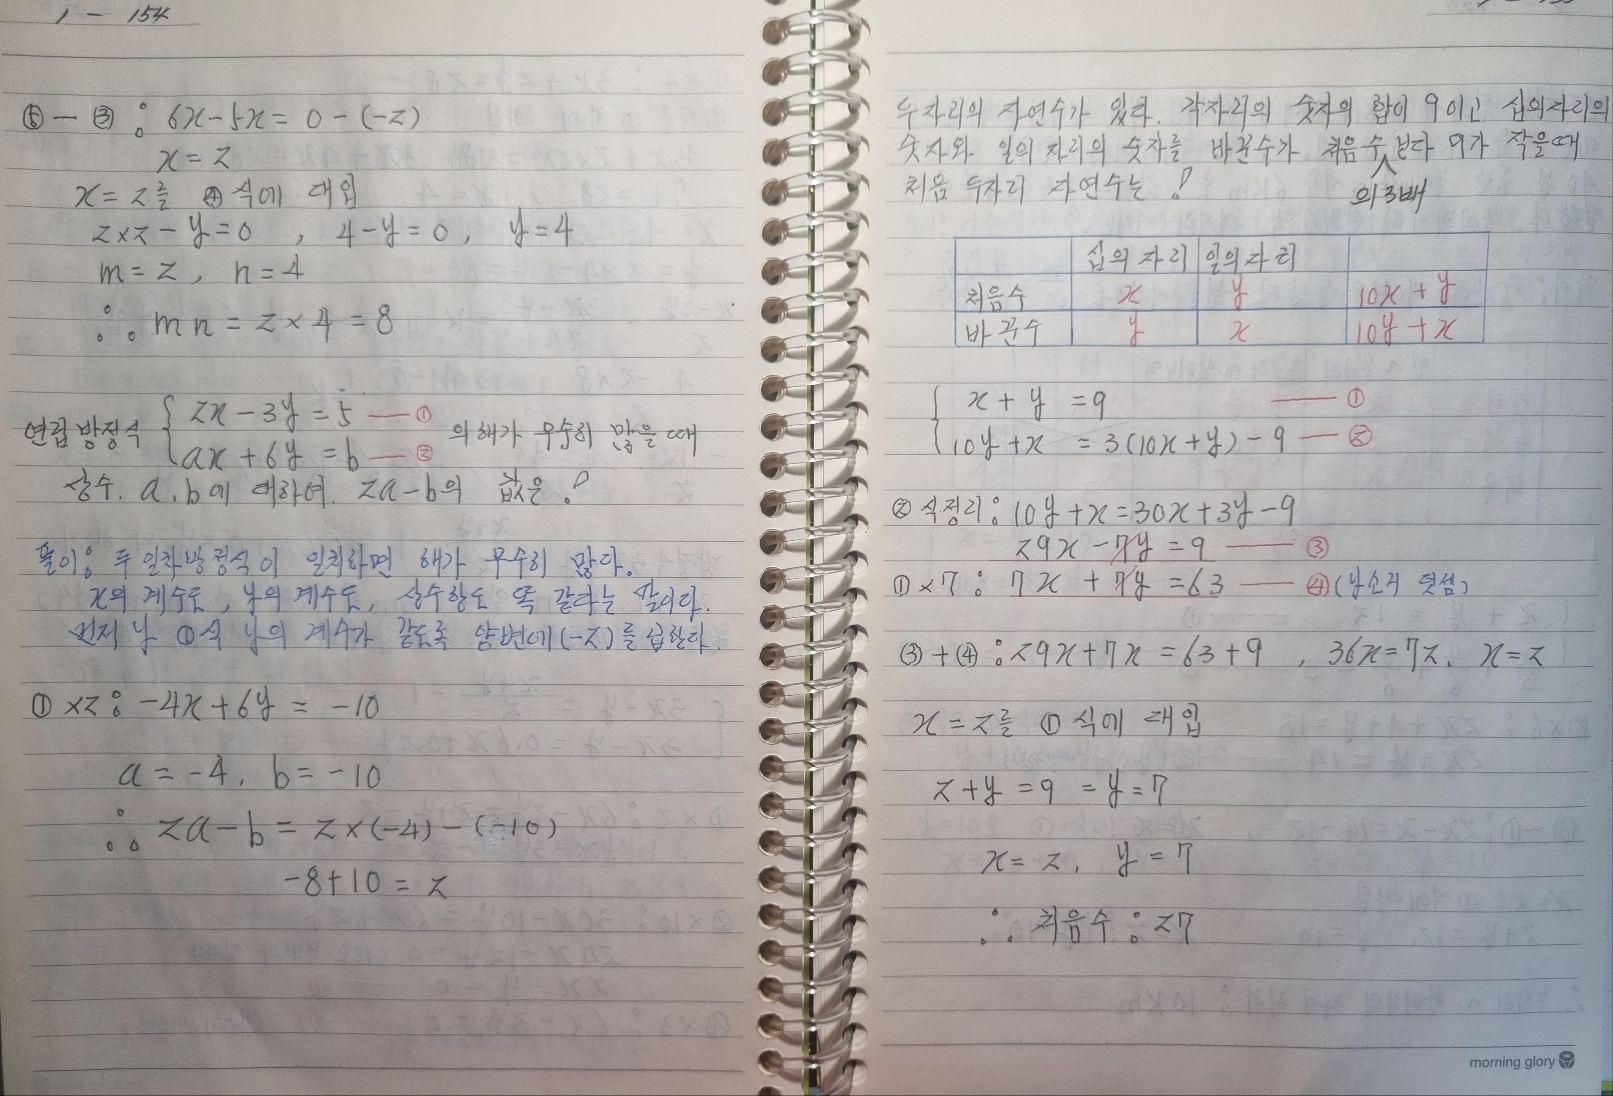 1 - 154
⑤ - ③ : 6x-5x = 0-(-2)
x = 2
x = 2를 ④ 식에 대입
2×2 - y = 0 , 4-y = 0, y = 4
m = 2, n = 4
∴ mn = 2 × 4 = 8
연립방정식 { 2x - 3y = 5 — ①
ax + 6y = b — ② 의 해가 무수히 많을 때
상수. a, b에 대하여. 2a-b의 값은?
풀이: 두 일차방정식이 일치하면 해가 무수히 많다.
x의 계수도, y의 계수도, 상수항도 똑 같다는 말이다.
먼저 ①식 y의 계수가 같도록 양변에 (-2)를 곱한다.
① ×2 : -4x + 6y = -10
a = -4, b = -10
∴ 2a-b = 2×(-4) - (-10)
-8+10 = 2
두자리의 자연수가 있다. 각자리의 숫자의 합이 9이고 십의자리의
숫자와 일의 자리의 숫자를 바꾼수가 처음수의 3배보다 9가 작을때
처음 두자리 자연수는?
십의 자리 일의자리
처음수 x y 10x + y
바꾼수 y x 10y + x
{ x + y = 9 — ①
10y + x = 3(10x+y) - 9 — ②
② 식정리 : 10y + x = 30x + 3y - 9
29x - 7y = 9 — ③
① × 7 : 7x + 7y = 63 — ④ (y소거 덧셈)
③ + ④ : 29x + 7x = 63 + 9 , 36x = 72. x = 2
x = 2를 ① 식에 대입
2 + y = 9 = y = 7
x = 2, y = 7
∴ 처음수 : 27
morning glory